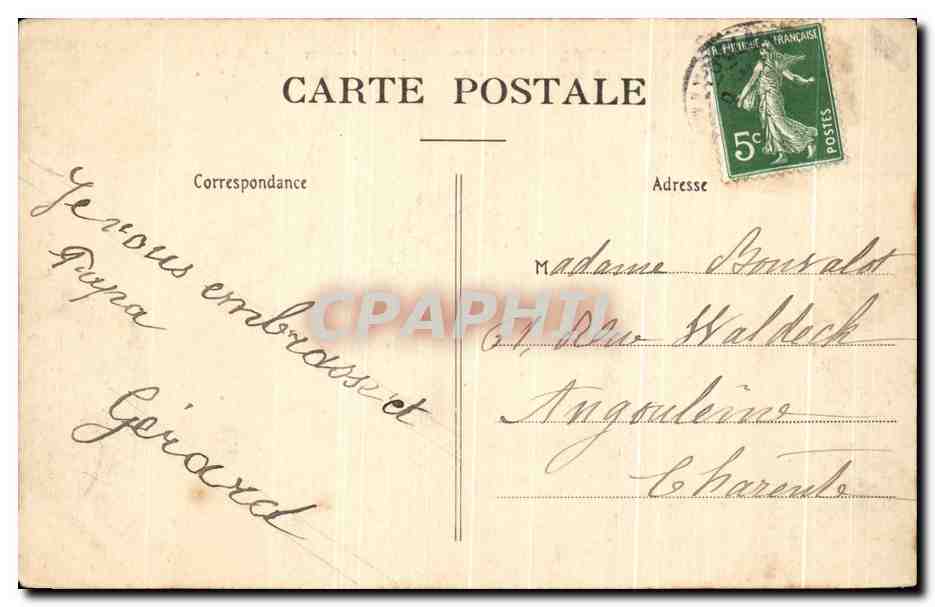 CARTE POSTALE
Correspondance
Adresse
Je vous embrasse et
Papa
Gérard
Madame Bonvalot
61, Rue Waldeck
Angoulême
Charente
RÉPUBLIQUE FRANÇAISE
5c
POSTES
CPAPHIL